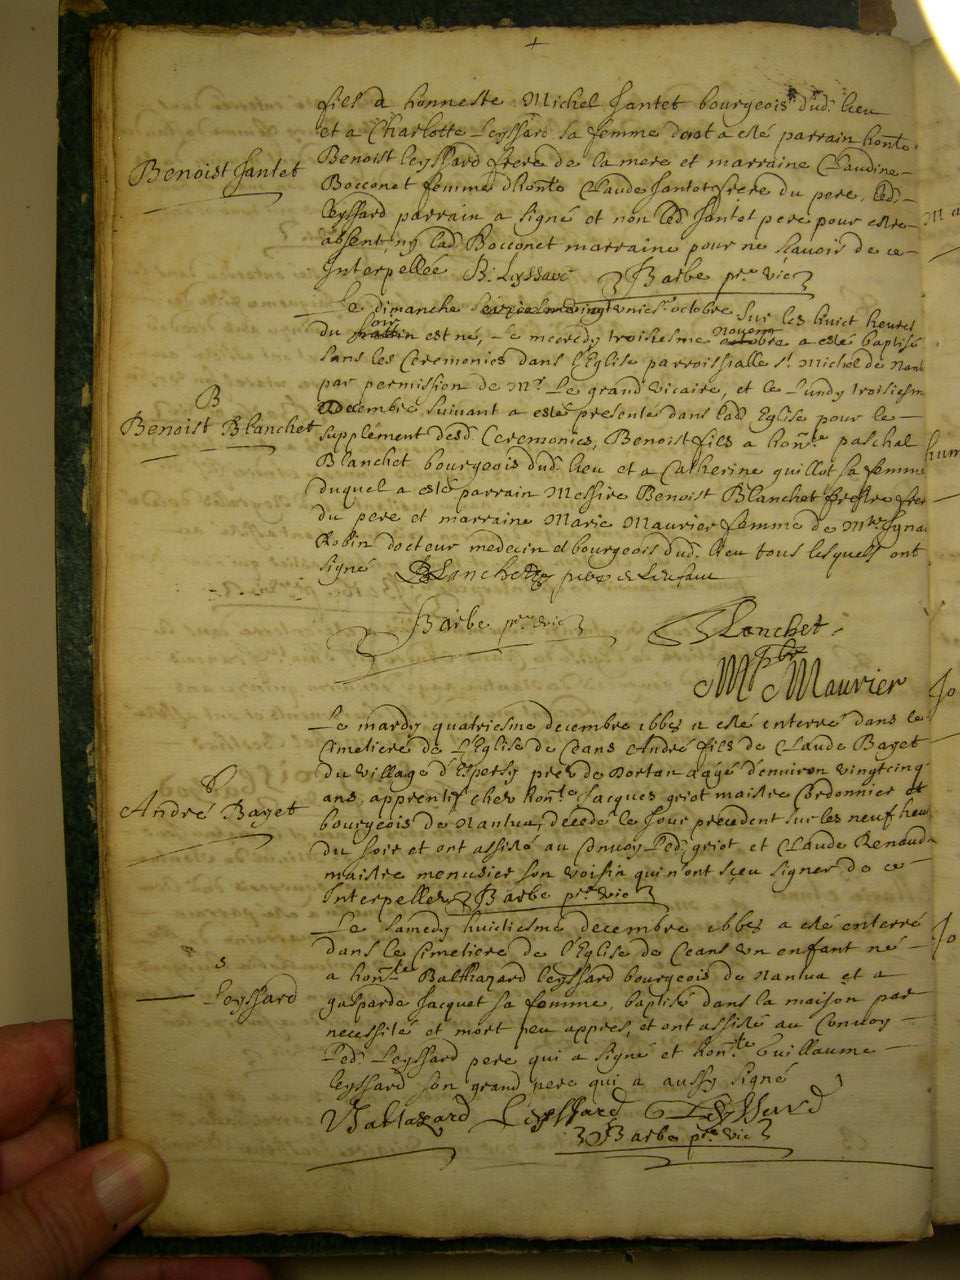 fils a honneste Michel Jantet bourgeois dud. lieu
et a Charlotte Leyssard sa femme dont a esté parrain honte.
Benoist Jantet
Benoist leyssard frere de la mere et marraine Claudine
Bocconet femme d'honte Claude Jantet frere du pere, led.
leyssard parrain a signé et non led. Jantet pere pour estre
absent, ny lad. Bocconet marraine pour ne sçavoir de ce
Interpellée B. Leyssard Barbe pre. vic.
Le dimanche vingtunies. octobre sur les huict heures
du soir est né, le mecredy troisiesme novem a esté baptisé
sans les Ceremonies dans l'Eglise parroissialle st. Michel de Nant
par permission de Mr. Le grand vicaire, et le Lundy troisiesm
decembre suivant a esté presenté dans lad. Eglise pour le
B
Benoist Blanchet
supplement desd. Ceremonies, Benoist fils a honte. paschal
Blanchet bourgeois dud. lieu et a Catherine guillot sa femme
duquel a esté parrain Messire Benoist Blanchet prestre frer
du pere et marraine Marie Maurier femme de Mtre. Igna
Robin docteur medecin et bourgeois dud. lieu tous lesquels ont
signé Blanchet pere de L'enfant
Barbe pre. vic. Blanchet
pbre
M Maurier
Le mardy quatriesme decembre 1662 a esté enterré dans le
Cimetiere de L'Eglise de Ceans André fils de Claude Bayet
du village d'Espersy pres de Dortan aagé d'environ vingtcinq
S
André Bayet
ans, apprentif chez honte. Jacques griot maistre Cordonnier et
bourgeois de Nantua, decedé le Jour precedent sur les neuf heu
du soir et ont assisté au Convoy led. griot et Claude Renaud
maistre menusier son voisin qui n'ont sçeu signer de ce
Interpellés Barbe pre. vic.
Le samedy huictiesme decembre 1662 a esté enterré
dans le Cimetiere de l'Eglise de Ceans un enfant né
S
Leyssard
a honte. Balthazard leyssard bourgeois de Nantua et a
gasparde Jacquet sa femme, baptisé dans la maison par
necessité et mort peu appres, et ont assisté au Convoy
led. Leyssard pere qui a signé et honte. Guillaume
leyssard son grand pere qui a aussy signé
Baltazard Leyssard G Leyssard
Barbe pre. vic.